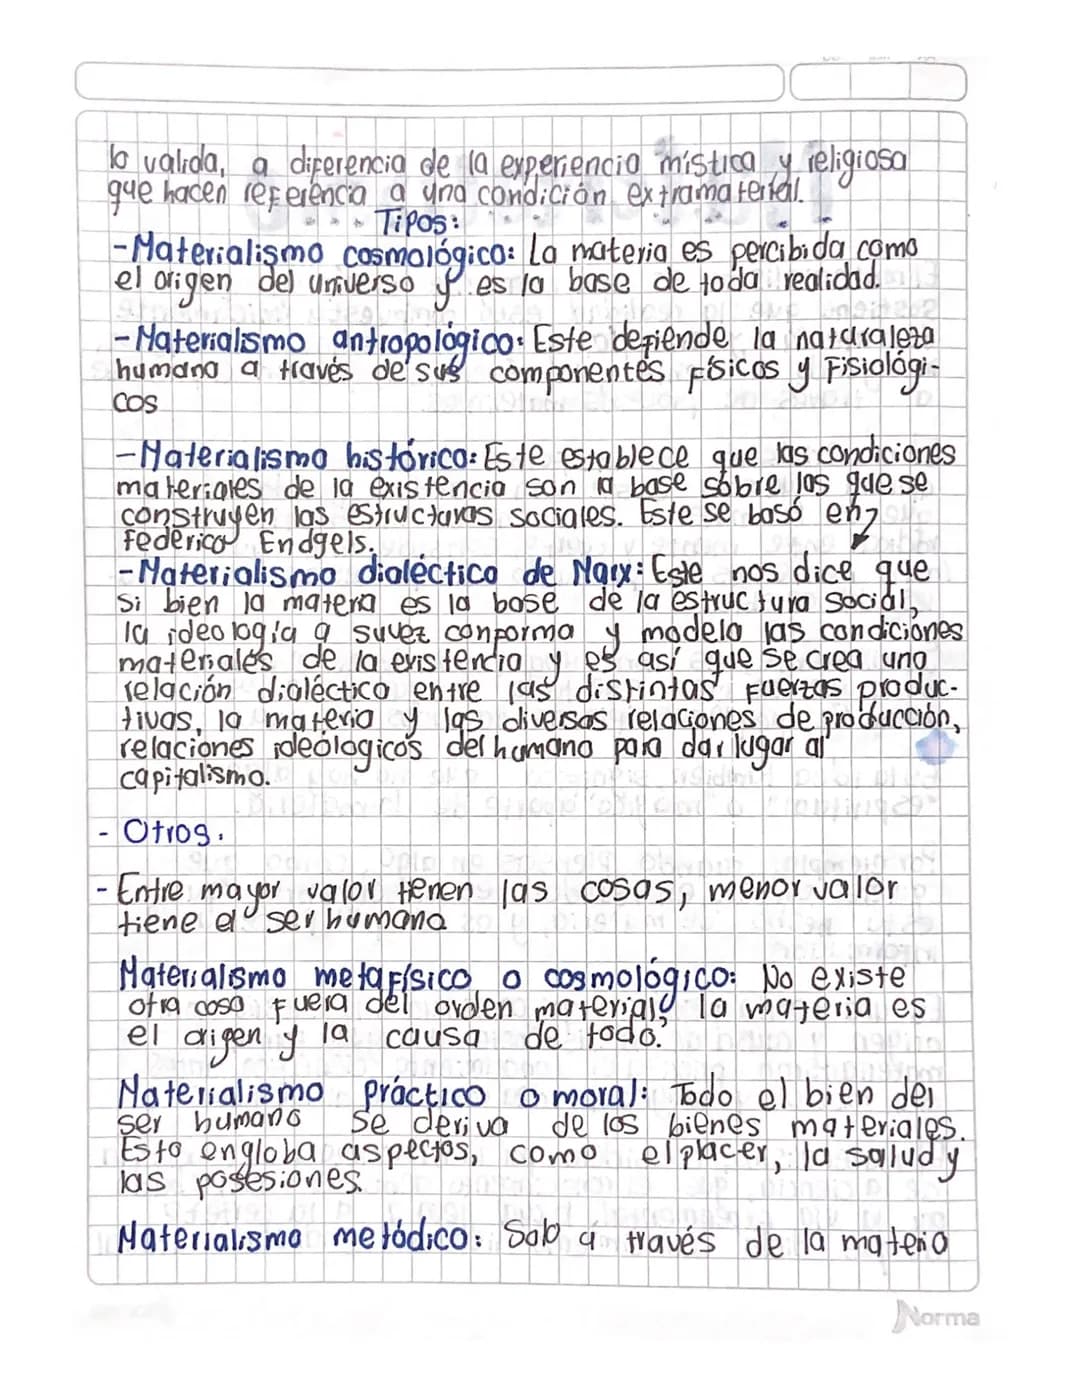 lo valida, a diferencia de la experiencia mística y religiosa
que hacen referencia a una condición extramaterial.
Tipos:
-Materialismo cosmológico: La materia es percibida como
el origen del universo y es la base de toda realidad.
-Materialismo antropológico: Este defiende la naturaleza
humana a través de sus componentes físicos y Fisiológi-
cos
-Materialismo histórico: Este establece que las condiciones
materiales de la existencia son la base sobre las que se
construyen las estructuras sociales. Este se basó en
Federico Endgels.
-Materialismo dialéctico de Marx: Este nos dice que
si bien la matera es la base de la estructura social,
la ideología a suvez conforma y modela las condiciones
materiales de la existencia y es así que se crea una
relación dialéctica entre las distintas Fuerzas produc-
tivas, la materia y las diversas relaciones de producción,
relaciones ideólogicos del humano para dar lugar al
capitalismo.
- Otros.
- Entre mayor valor tienen las cosas, menor valor
tiene el ser humano
Materialismo metafísico o cosmológico: No existe
otra cosa Fuera del orden material, la materia es
el origen y la causa de todo.
Materialismo práctico o moral: Todo el bien del
ser humano se deriva de los bienes materiales.
Esto engloba aspectos, como el placer, la salud y
las posesiones.
Materialismo metódico: Solo a través de la materia
Norma